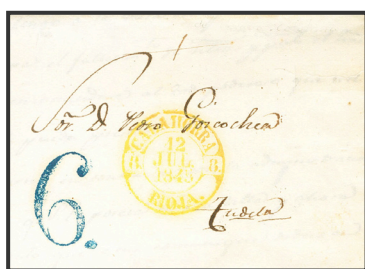 Sor. D. Pedro Goicochea
CALAHORRA
8. 8.
12
JUL.
1845
RIOJA.
Tudela
6.